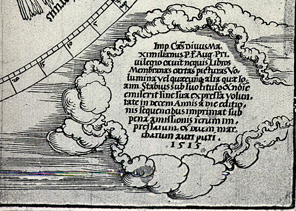 Imp Cæs Divus Ma
ximilianus P.F. Aug. Pri
vilegio cavit nequis Libros
Membranas cartas picturas Vo
lumina vel quæcunq alia quæ Io
ann Stabius sub suo titulo & noīe
emiserit sine sua expressa volun
tate in decem Annis a die editio
nis sequencibus imprimat sub
pena amissionis rerum im
pressarum et decem mar
charum auri puri.
1515